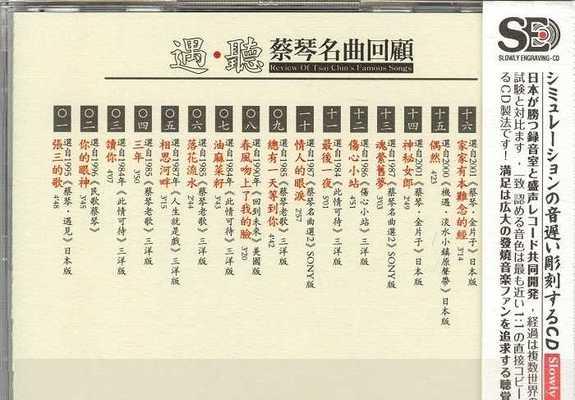 遇・聽 蔡琴名曲回顧
Review Of Tsai Chin's Famous Songs
〇一
張三的歌 4'48
《蔡琴・遇見》日本版
〇二
你的眼神 3'48
選自1996《民歌蔡琴》
〇三
讀你 4'07
選自1984年《此情可待》三洋版
〇四
三年 3'50
選自1985《蔡琴老歌》三洋版
〇五
相思河畔 3'15
選自1987年《人生就是戲》三洋版
〇六
落花流水 2'44
選自1985《蔡琴老歌》三洋版
〇七
油麻菜籽 3'43
選自1984年《此情可待》三洋版
〇八
春風吻上了我的臉 3'20
選自1990年《回到未來》美國版
〇九
總有一天等到你 4'42
選自1985《蔡琴老歌》三洋版
一十
情人的眼淚 2'57
《蔡琴名曲選2》SONY版
十一
最後一夜 3'01
選自1984《此情可待》三洋版
十二
傷心小站 4'51
選自1986《傷心小站》三洋版
十三
魂縈舊夢 3'03
《蔡琴名曲選2》SONY版
十四
神秘女郎 2'49
選自2001《蔡琴・金片子》日本版
十五
偶然 4'27
選自2000《機遇・淡水小鎮原聲帶》日本版
十六
家家有本難念的經 3'14
選自2001《蔡琴・金片子》日本版
SE
SLOWLY ENGRAVING-CD
シミュレーションの音遅い彫刻するCD Slowly
日本が勝つ録音室と盛声レコード共同開発，経過は複数世界の
試験と対比ます，一致 認める音色は最も近い1:1の直接コピー
るCD製法です！満足は広大の發燒音楽ファンを追求する聴覚